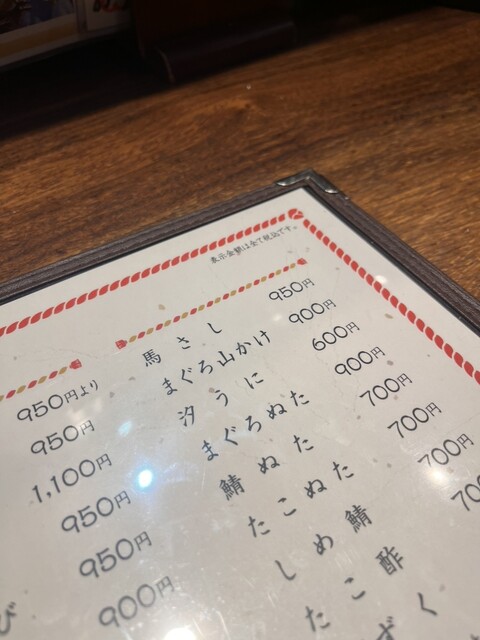 表示金額は全て税込です。
馬さし 950円
まぐろ山かけ 900円
汐うに 600円
まぐろぬた 900円
鯖ぬた 700円
たこぬた 700円
しめ鯖 700円
たこ酢 700
ずく
950円より
950円
1,100円
950円
950円
900円
び